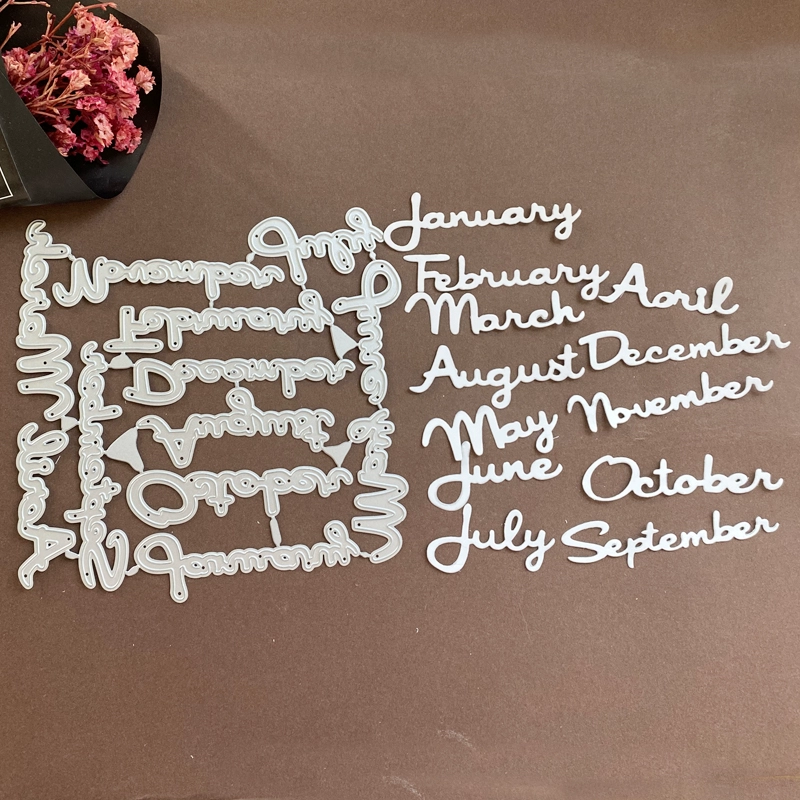 January
February
March April
August December
May November
June October
July September